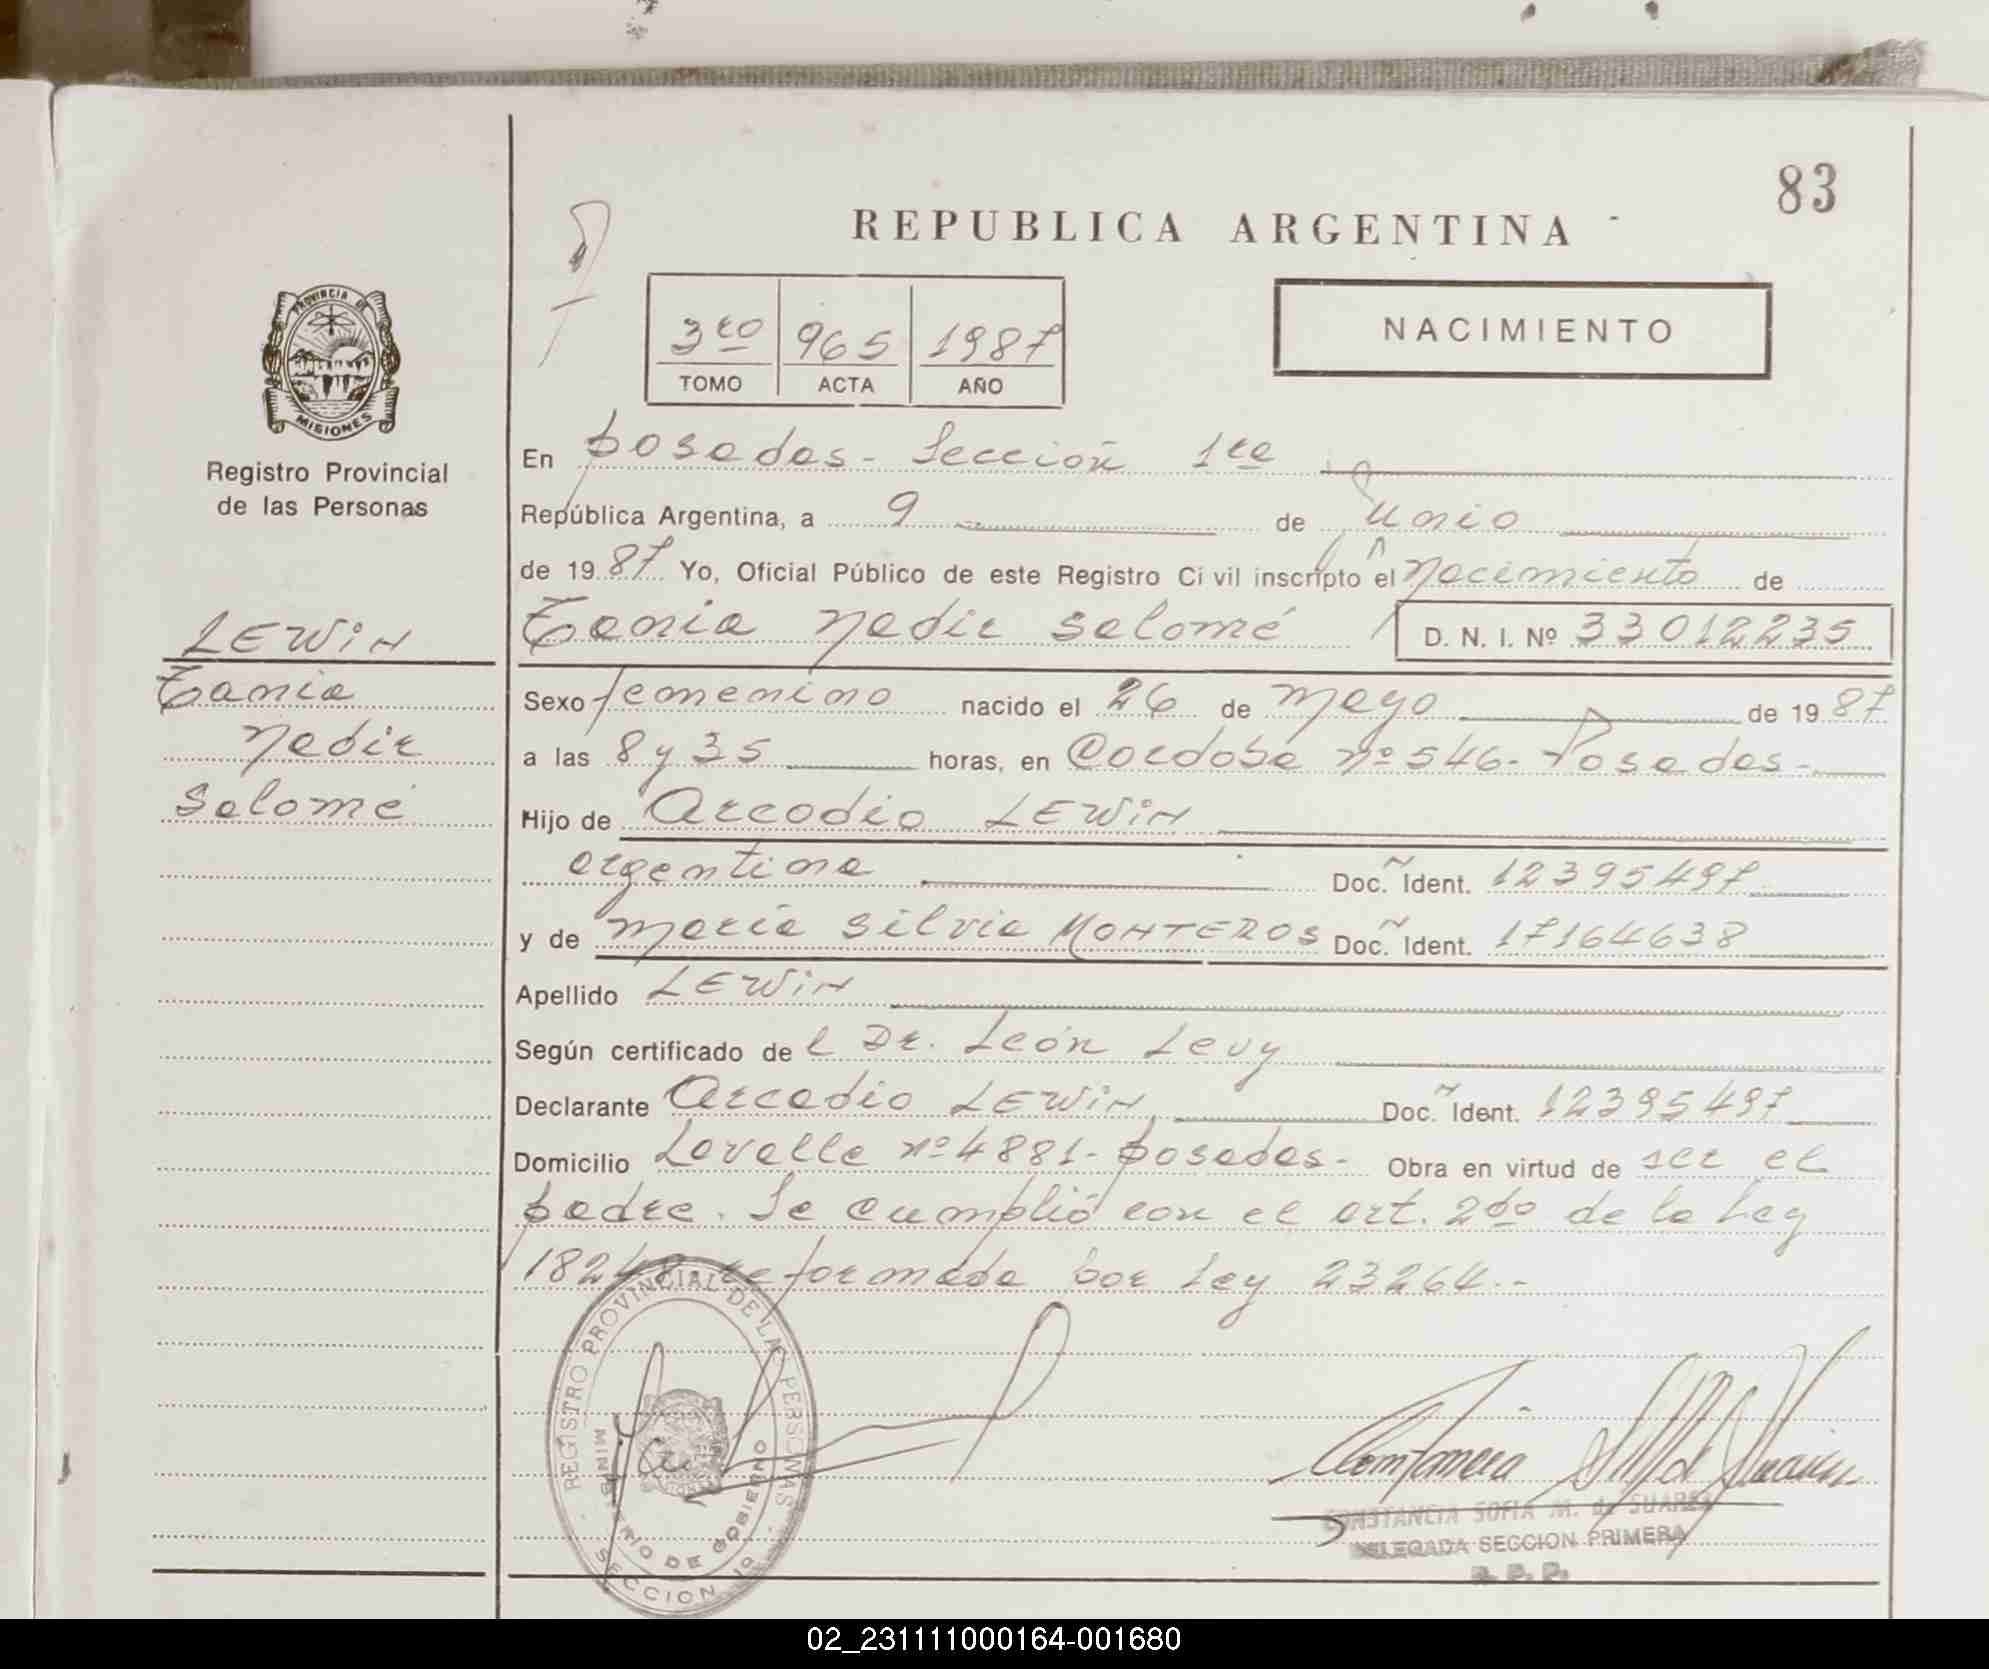 83
REPUBLICA ARGENTINA
3ro 965 1987
TOMO ACTA AÑO
NACIMIENTO
PROVINCIA DE
MISIONES
Registro Provincial
de las Personas
LEWIN
Tania
Nadir
Salomé
En Posadas - Sección 1ra
República Argentina, a 9 de Junio
de 1987 Yo, Oficial Público de este Registro Civil inscripto el Nacimiento de
Tania Nadir Salomé D. N. I. Nº 33012235
Sexo femenino nacido el 26 de Mayo de 1987
a las 8 y 35 horas, en Córdoba Nº 546 - Posadas -
Hijo de Arcadio LEWIN
argentina Doc. Ident. 12395497
y de María Silvia MONTEROS Doc. Ident. 17164638
Apellido LEWIN
Según certificado del Dr. León Levy
Declarante Arcadio LEWIN Doc. Ident. 12395497
Domicilio Lavalle Nº 4881 - Posadas - Obra en virtud de ser el
padre. Se cumplió con el art. 2do de la Ley
18248 reformada por Ley 23264.-
REGISTRO PROVINCIAL DE LAS PERSONAS
MINISTERIO DE GOBIERNO
SECCION 1a
CONSTANCIA SOFIA M. de SUAREZ
DELEGADA SECCION PRIMERA
R. P. P.
02_231111000164-001680